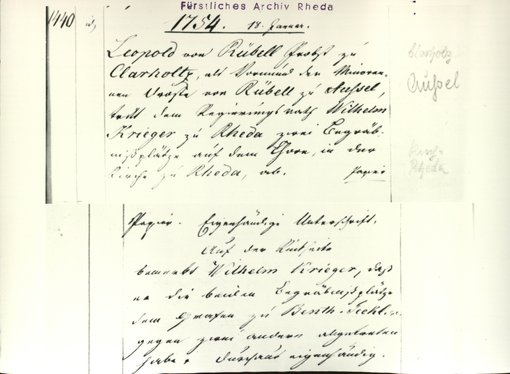 Fürstliches Archiv Rheda
1440 1754. 18. Januar.
Leopold von Rübell Probst zu
Clarholtz, als Vormund der Minoren-
nen Droste von Rübell zu Aussel,
tritt dem Regierungsrath Wilhelm
Krieger zu Rheda zwei Begräb-
nißplätze auf dem Chore, in der
Kirche zu Rheda, ab. Papier
Clarholz
Aussel
Kirche
Rheda
Papier. Eigenhändige Unterschrift.
Auf der Rückseite
bemerkt Wilhelm Krieger, daß
er die beiden Begräbnißplätze
dem Grafen zu Benth. Teckl.
gegen zwei andere abgetreten
habe. Durchaus eigenhändig.